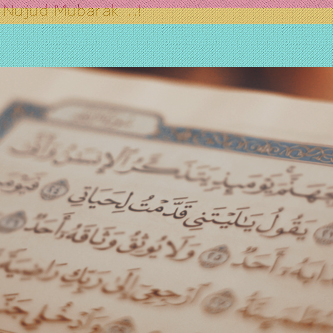 Nujud Mubarak ..!
يَوْمَئِذٍ يَتَذَكَّرُ ٱلْإِنسَٰنُ وَأَنَّىٰ
يَقُولُ يَٰلَيْتَنِى قَدَّمْتُ لِحَيَاتِى ٢٤ فَيَوْمَ
أَحَدٌ ٢٥ وَلَا يُوثِقُ وَثَاقَهُۥٓ أَحَدٌ
ٱرْجِعِىٓ إِلَىٰ رَبِّكِ رَاضِيَةً
وَٱدْخُلِى